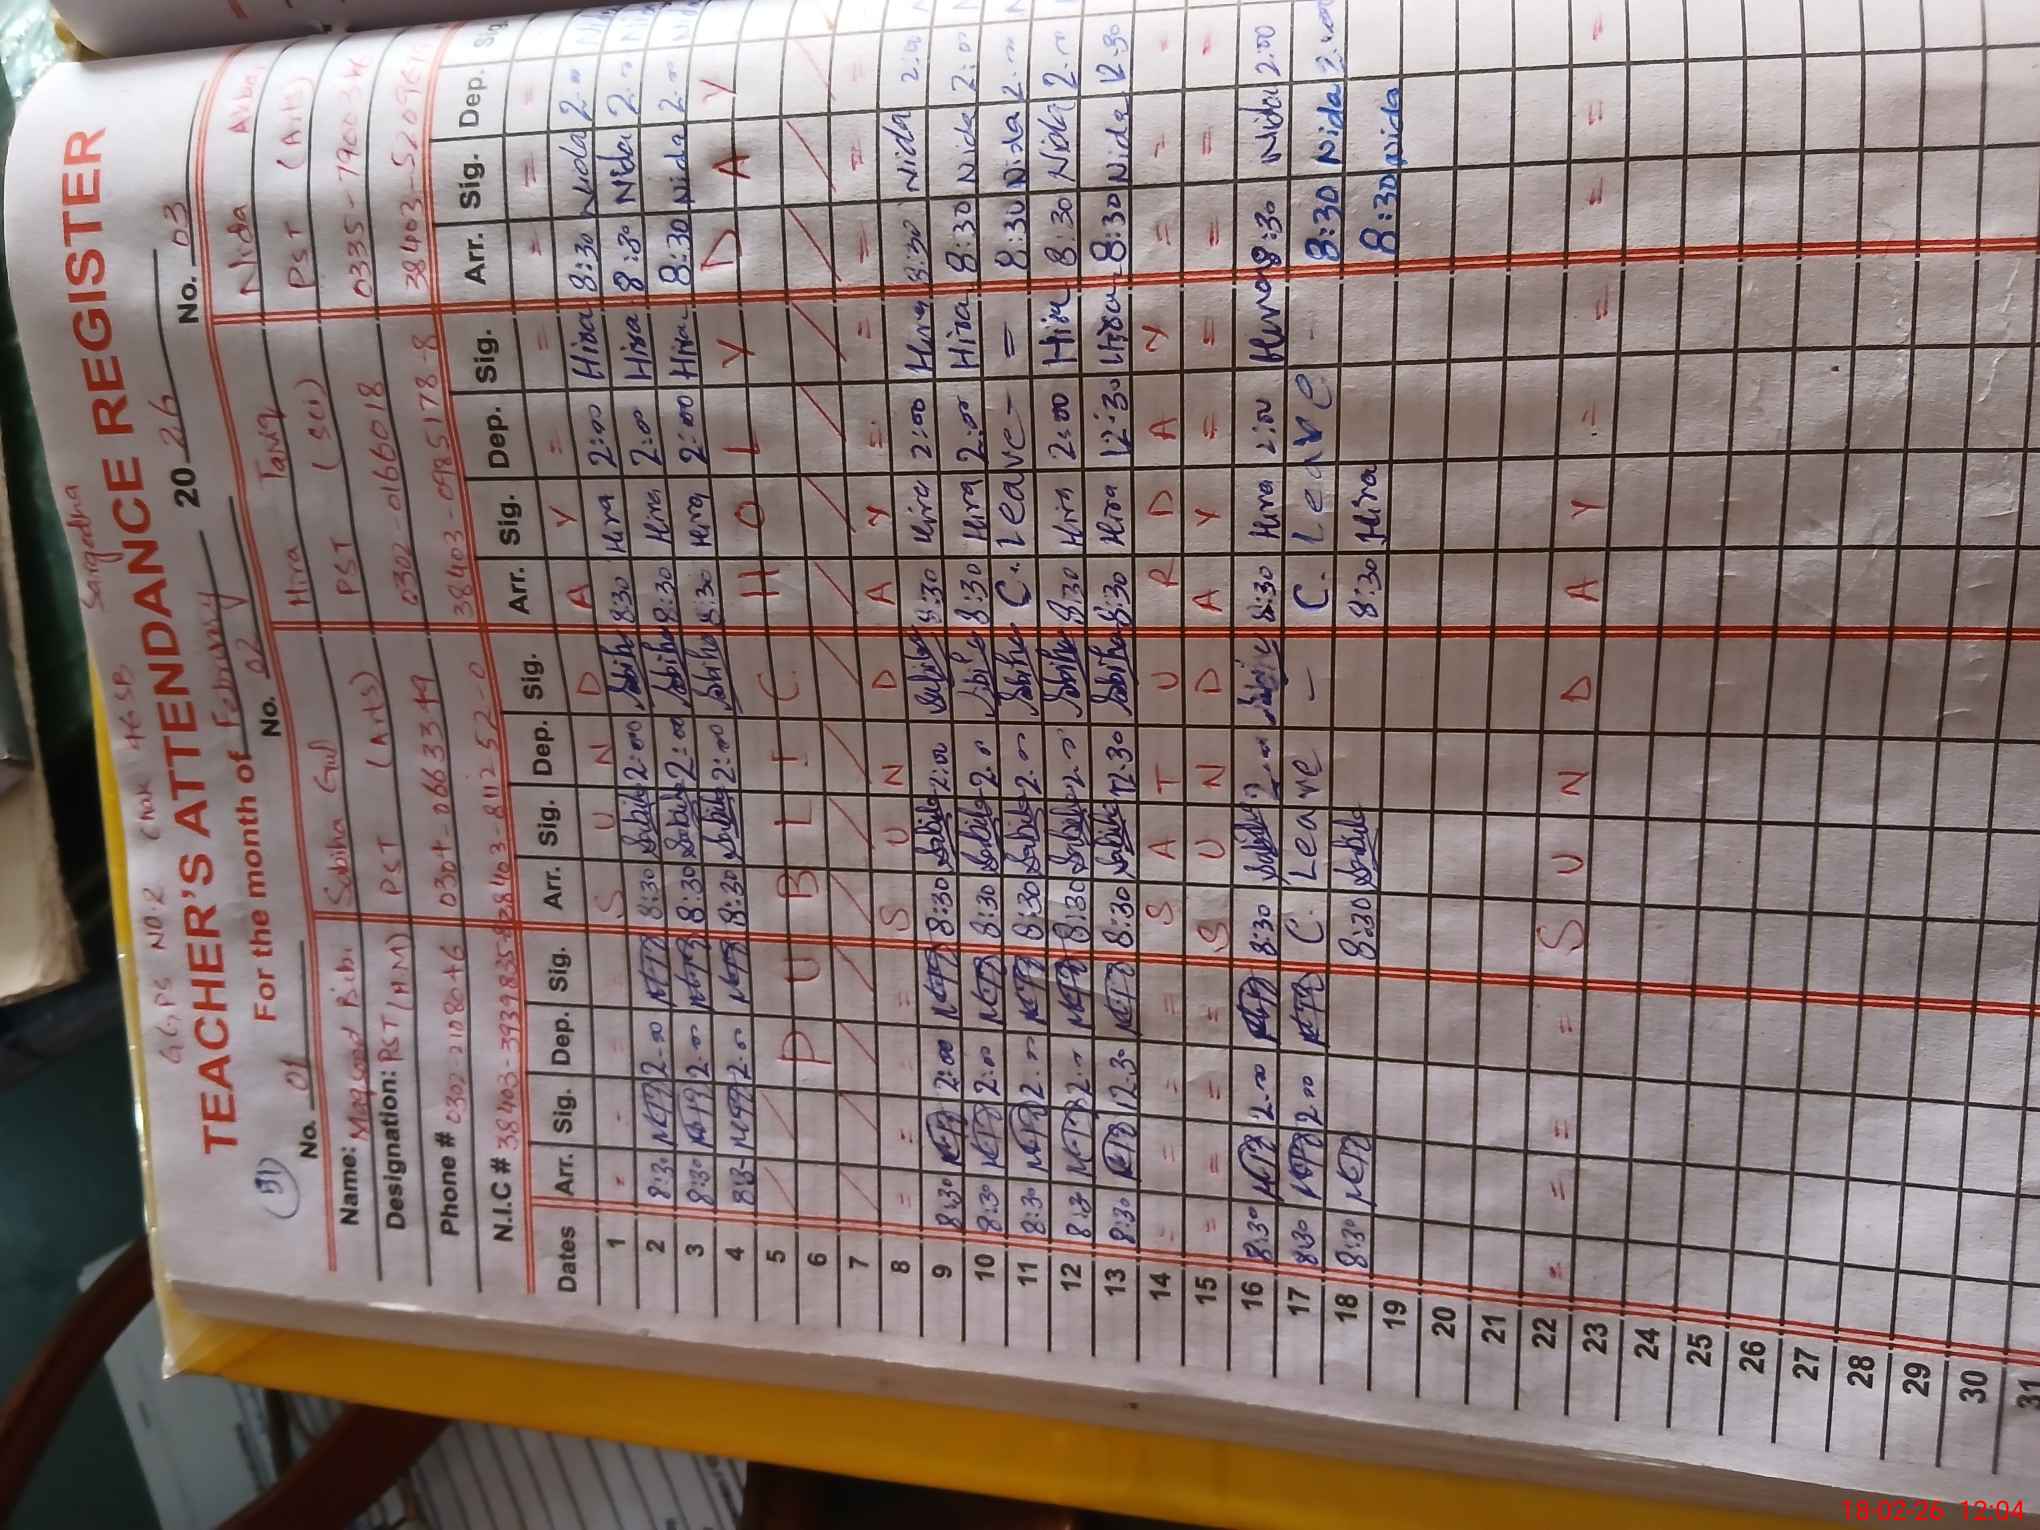 GGPS NO 2 Chak 46 SB Sargodha
TEACHER'S ATTENDANCE REGISTER
(51) For the month of February 2026
No. 01 No. 02 No. 03
Name: Maqsood Bibi Sabiha Gul Hira Tariq Nida
Designation: PST (HM) PST (Arts) PST (Sci) PST (Arts)
Phone # 0302-0166018
N.I.C #
Dates Arr. Sig. Dep. Sig. Arr. Sig. Dep. Sig. Arr. Sig. Dep. Sig. Arr. Sig. Dep. Sig.
1 S U N D A Y = = = =
2 8:30 2:00 8:30 Sabiha 2:00 Sabiha 8:30 Hira 2:00 Hira 8:30 Nida 2:00
3 8:30 2:00 8:30 Sabiha 2:00 Sabiha 8:30 Hira 2:00 Hira 8:30 Nida 2:00
4 8:30 2:00 8:30 Sabiha 2:00 Sabiha 8:30 Hira 2:00 Hira 8:30 Nida 2:00
5 P U B L I C H O L I D A Y
6
7
8 = = = = S U N D A Y = = = = =
9 8:30 2:00 8:30 Sabiha 2:00 Sabiha 8:30 Hira 2:00 Hira 8:30 Nida 2:00
10 8:30 2:00 8:30 Sabiha 2:00 Sabiha 8:30 Hira 2:00 Hira 8:30 Nida 2:00
11 8:30 2:00 8:30 Sabiha 2:00 Sabiha C. Leave - = 8:30 Nida 2:00
12 8:30 2:00 8:30 Sabiha 2:00 Sabiha 8:30 Hira 2:00 Hira 8:30 Nida 2:00
13 8:30 12:30 8:30 Sabiha 12:30 Sabiha 8:30 Hira 12:30 Hira 8:30 Nida 12:30
14 = = = = S A T U R D A Y = = =
15 = = = = S U N D A Y = = = = =
16 8:30 2:00 8:30 Sabiha 2:00 Sabiha 8:30 Hira 2:00 Hira 8:30 Nida 2:00
17 8:30 2:00 C. Leave - C. Leave - 8:30 Nida 2:00
18 8:30 8:30 Sabiha 8:30 Hira 8:30 Nida
19
20
21
22 = = = = S U N D A Y = = = = =
23
24
25
26
27
28
29
30
31
18-02-26 12:04